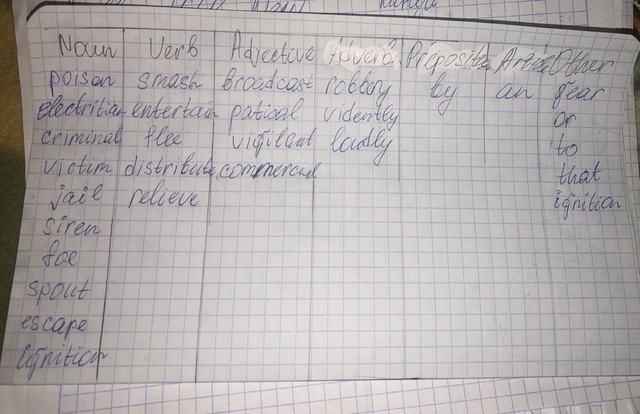 Noun Verb Adjective Adverb Preposition Article Other
poison smash broadcast robbory by an fear
electritian entertain patioal vidently or
criminal flee vigilant loudly to
victim distribute commercial that
jail relieve ignition
siren
foe
spout
escape
ignition